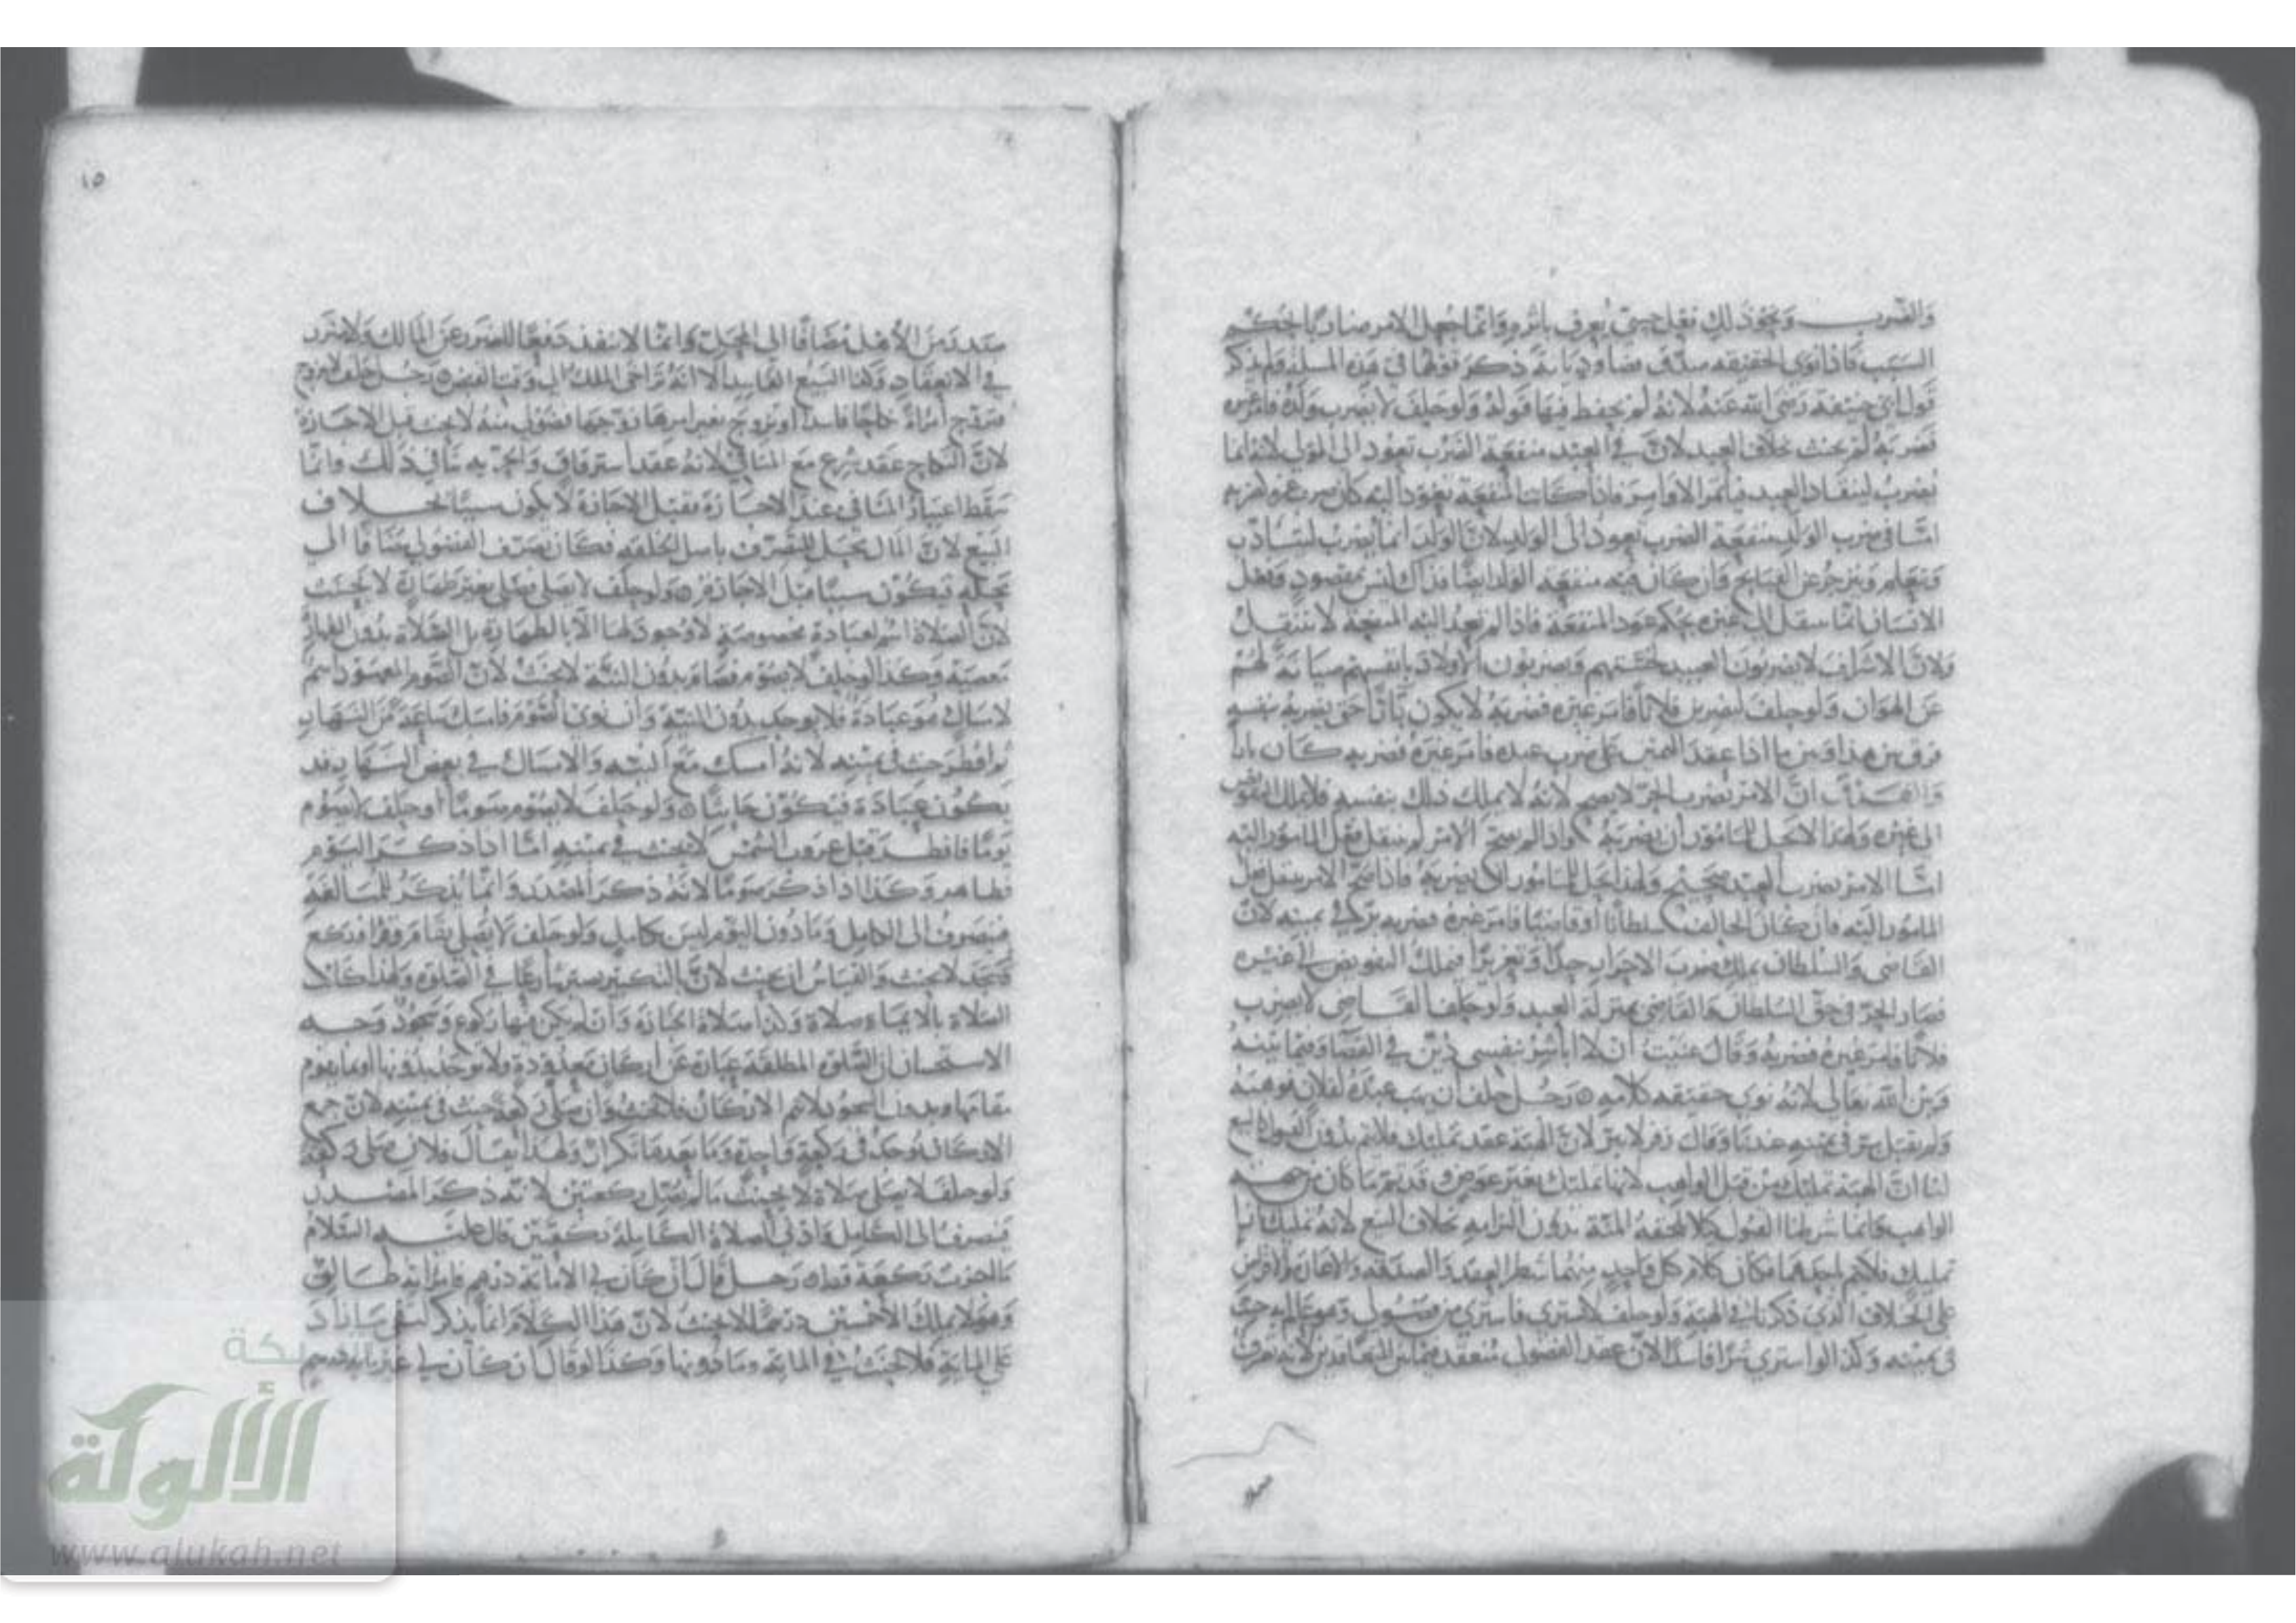 والضرب ونحو ذلك فعل حسي يعرف بأثره وانما جعل الامر ضاربا بالحكم
السبب فاذا نوى الحقيقة صدق قضاء وديانة ذكر قولهما في هذه المسئلة ولم يذكر
قول ابي حنيفة رضي الله عنه لانه لم يحفظ فيها قوله ولو حلف لا يضرب ولده فامر غيره
فضربه لم يحنث خلاف العبد لان في العبد منفعة الضرب تعود الى المولى لانه انما
يضرب لينقاد العبد فيأتمر الاوامر فاذا كانت المنفعة تعود اليه كان
اما في ضرب الولد منفعة الضرب تعود الى الولد لان الولد انما يضرب ليتأدب
ويتعلم وينزجر عن القبايح وان كان فيه منفعة الوالد ايضا فذاك ليس بمقصود وفعل
الانسان انما ينتقل الى غيره بحكم عود المنفعة فاذا لم تعد اليه المنفعة لا ينتقل
ولان الاشراف لا يضربون العبيد لخستهم ويضربون الاولاد بانفسهم صيانة لهم
عن الهوان ولو حلف ليضربن فلانا فامر غيره فضربه لا يكون بارا حتى يضربه بنفسه
فرق بين هذا وبين ما اذا عقد اليمين على ضرب عبده فامر غيره فضربه كان بارا
ان الامر بضرب الحر لا يصح لانه لا يملك ذلك بنفسه فلا يملك التفويض
الى غيره ولهذا لا يحل للمامور ان يضربه واذا لم يصح الامر لم ينتقل فعل المامور اليه
اما الامر بضرب العبد صحيح ولهذا يحل للمامور ان يضربه فاذا صح الامر ينتقل فعل
المامور اليه فان كان الحالف سلطانا او قاضيا فامر غيره فضربه بر في يمينه لان
القاضي والسلطان يملك ضرب الاحرار حدا وتعزيرا فيملك التفويض الى غيره
فصار الحر في حق السلطان والقاضي بمنزلة العبد ولو حلف القاضي لا يضرب
فلانا فامر غيره فضربه وقال عنيت ان لا اباشر بنفسي دين في القضاء وفيما بينه
وبين الله تعالى لانه نوى حقيقة كلامه رجل حلف ان يهب عبده لفلان فوهبه
ولم يقبل بر في يمينه عندنا وقال زفر لا يبر لان الهبة عقد تمليك فلا يتم بدون القبول كالبيع
لنا ان الهبة تمليك من قبل الواهب لانها تمليك بغير عوض وقد تم ما كان من جهة
الواهب وانما شرطنا القبول كيلا تلحقه المنة بدون التزامه بخلاف البيع لانه تمليك
تمليك فلا يتم باحدهما فكان كلام كل واحد منهما شطر العقد والصدقة والاعارة والاقراض
على الخلاف الذي ذكرنا في الهبة ولو حلف لا يشتري فاشترى من فضولي حنث
في يمينه وكذا لو اشترى شراء فاسدا لان عقد الفضولي منعقد فيما بين المتعاقدين لانه تصرف
١٥
صدر من الاهل مضافا الى المحل وانما لا ينفذ دفعا للضرر عن المالك ولا ضرر
في الانعقاد وكذا البيع الفاسد الا انه تراخى الملك الى وقت القبض رجل حلف لا يتزوج
فتزوج امراة نكاحا فاسدا او تزوج بغير امرها زوجها فضولي منه لا يحنث قبل الاجازة
لان النكاح عقد شرع مع المنافي لانه عقد استرقاق والحرية تنافي ذلك وانما
سقط اعتبار المنافي عند الاجازة فقبل الاجازة لا يكون سببا بخلاف
البيع لان المال محل للتصرف باصل الخلقة فكان تصرف الفضولي مضافا الى
محله فيكون سببا قبل الاجازة ولو حلف لا يصلي فصلى بغير طهارة لا يحنث
لان الصلاة اسم لعبادة مخصوصة لا وجود لها الا بالطهارة بل الصلاة بدون الطهارة
معصية وكذا لو حلف لا يصوم فصام بدون النية لا يحنث لان الصوم المعهود اسم
لامساك هو عبادة فلا يوجد بدون النية وان نوى الصوم فامسك ساعة من النهار
ثم افطر حنث في يمينه لانه امسك مع النية والامساك في بعض النهار قد
يكون عبادة فيكون حانثا ولو حلف لا يصوم صوما او حلف لا يصوم
يوما فافطر قبل غروب الشمس لا يحنث في يمينه اما اذا ذكر اليوم
فظاهر وكذا اذا ذكر صوما لانه ذكر المصدر وانما يذكر للمبالغة
فينصرف الى الكامل وما دون اليوم ليس بكامل ولو حلف لا يصلي فقام وقرا وركع
وسجد لا يحنث والقياس ان يحنث لان بالتكبير يصير شارعا في الصلوة ولهذا كانت
الصلاة بالايماء صلاة وكذا صلاة الجنازة وان لم يكن فيها ركوع وسجود وجه
الاستحسان ان الصلوة المطلقة عبارة عن اركان معدودة ولا توجد بدونها او ما يقوم
مقامها وبدون السجود لا تتم الاركان فلا يحنث وان صلى ركعة حنث في يمينه لان جميع
الاركان توجد في ركعة واحدة وما بعدها تكرار ولهذا يقال فلان صلى ركعة
ولو حلف لا يصلي صلاة لا يحنث ما لم يصل ركعتين لانه ذكر المصدر
فينصرف الى الكامل وادنى الصلاة الكاملة ركعتين قال عليه السلام
ركعة قط رجل قال ان كان لي الا مائة درهم فامراته طالق
وهو لا يملك الا خمسين درهما لا يحنث لان هذا الكلام انما يذكر لنفي ما زاد
على المائة فلا يحنث في المائة وما دونها وكذا لو قال ان كان لي غير مائة درهم
شبكة
الألوكة
www.alukah.net